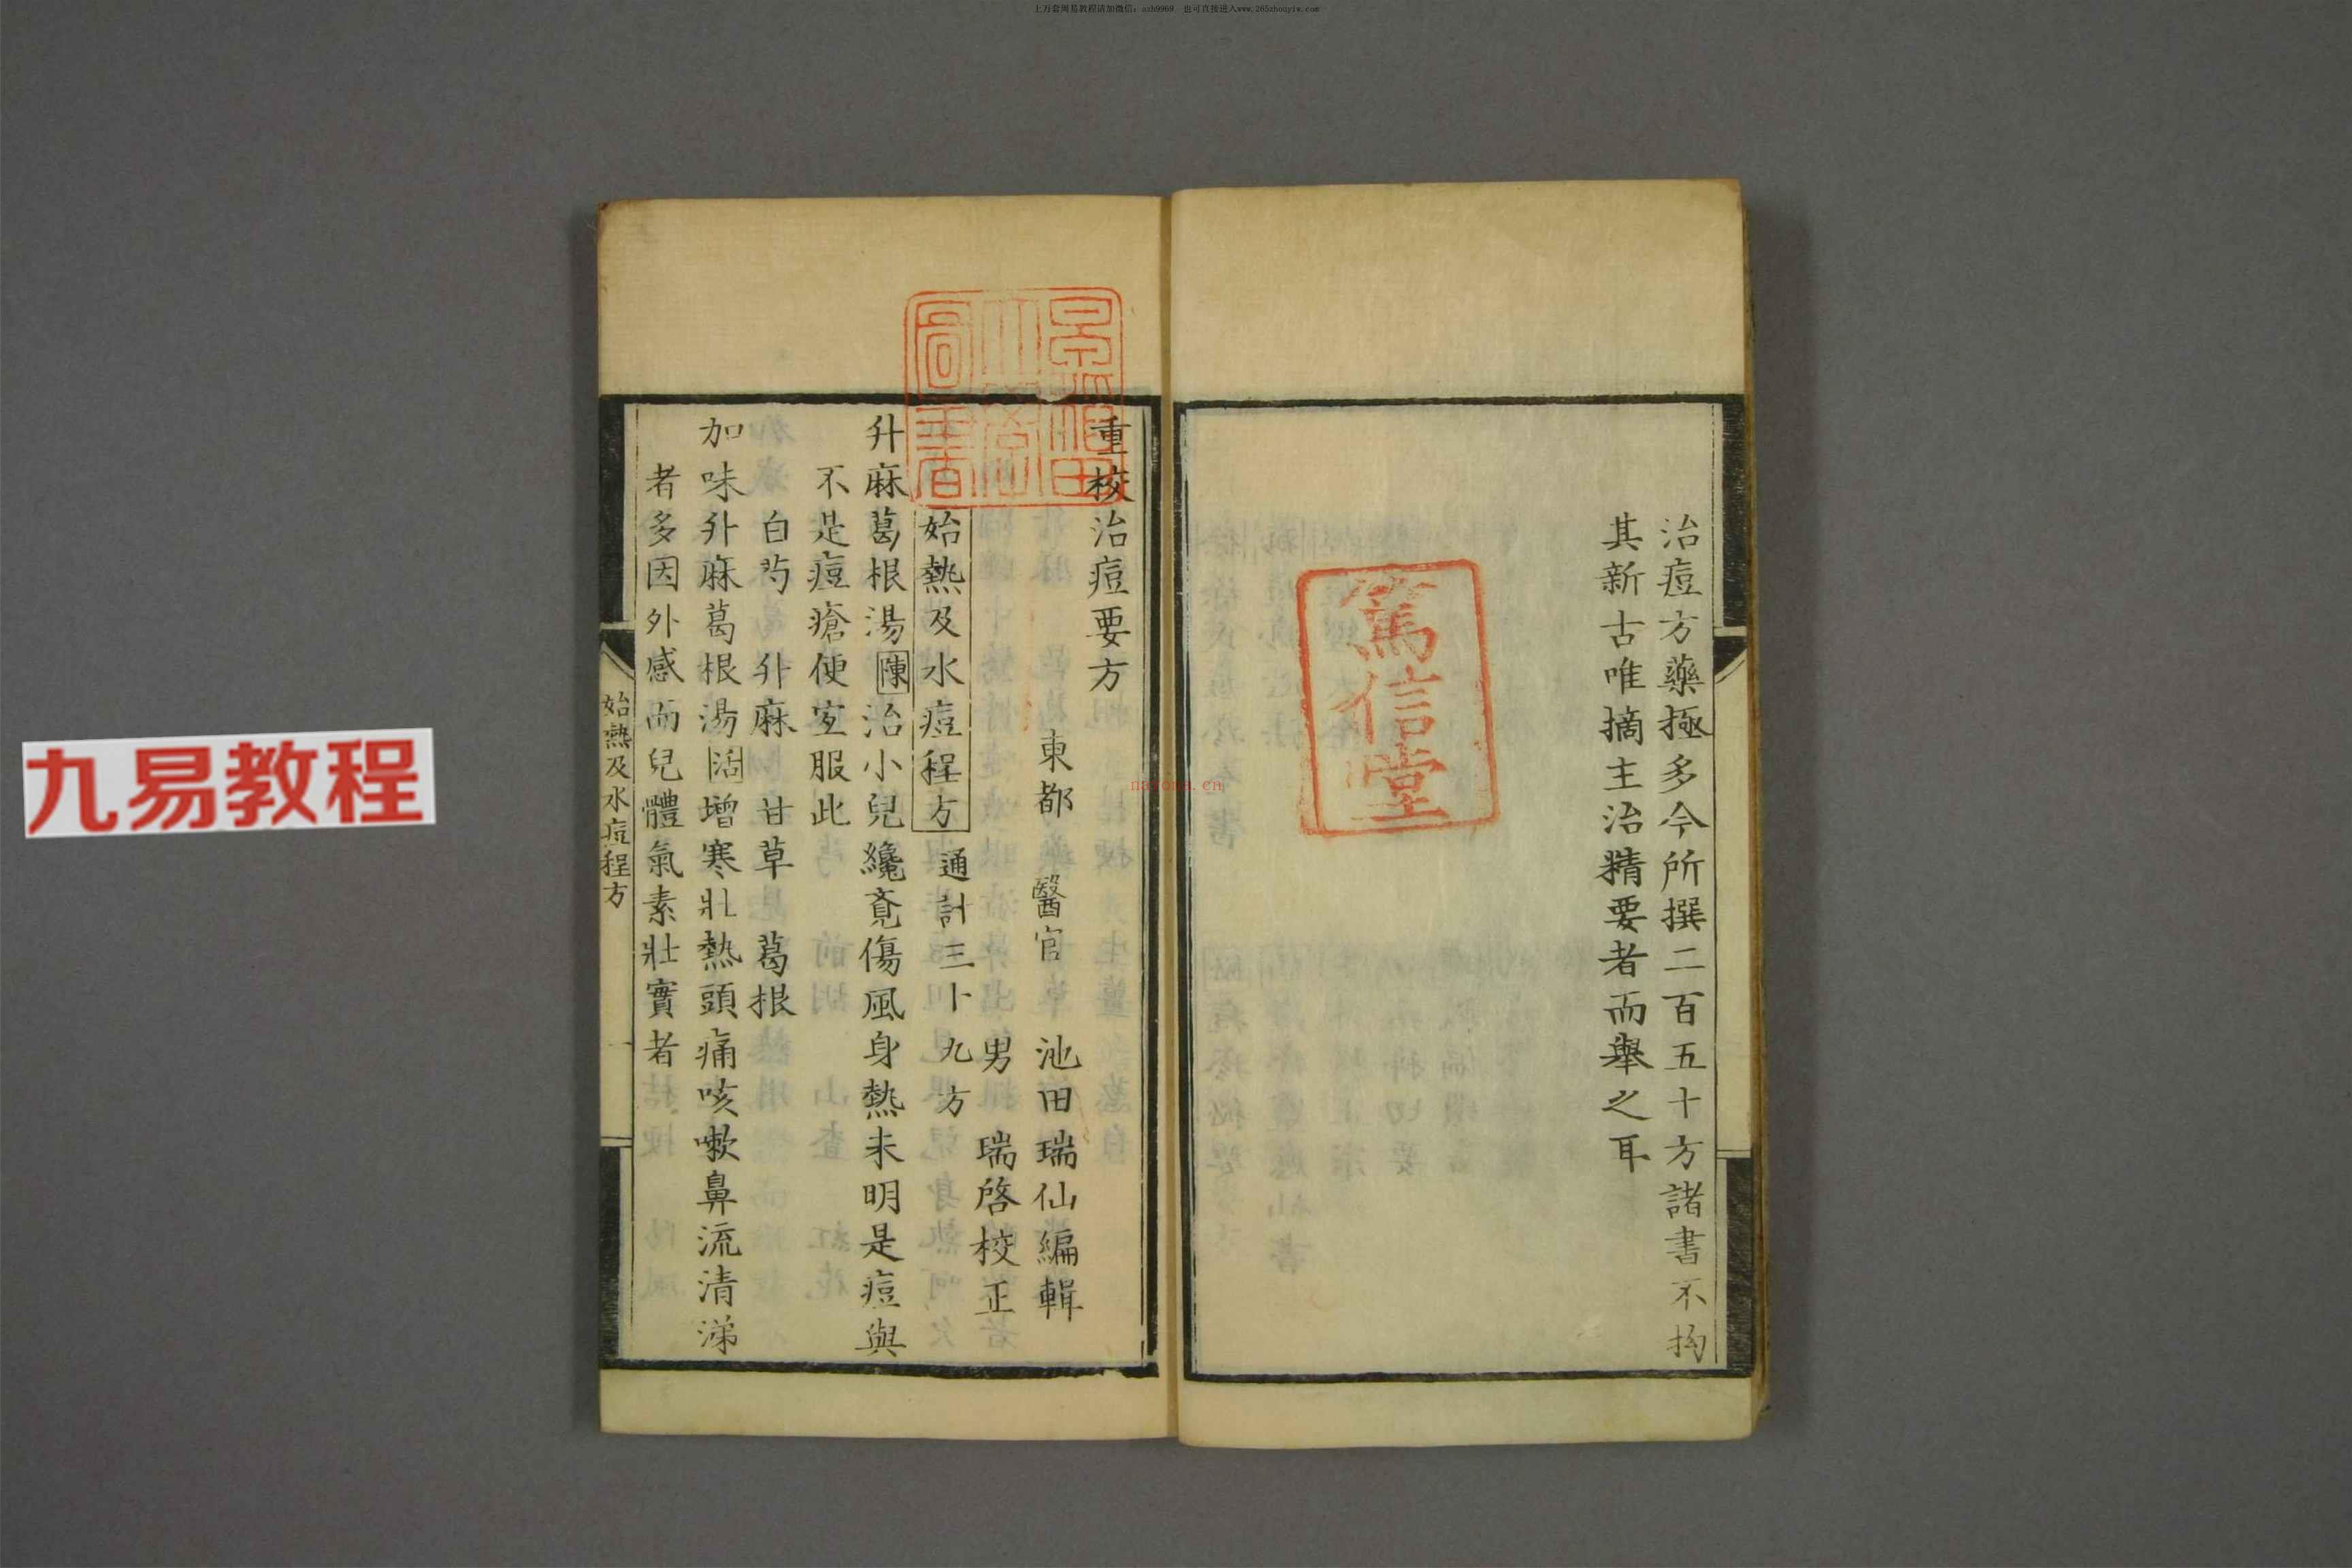 上万套周易教程请加微信：azh9969 也可直接进入www.265zhouyiw.com
治痘方藥極多今所撰二百五十方諸書不拘
其新古唯摘主治精要者而舉之耳
篤信堂
重校治痘要方
東都 醫官 池田瑞仙編輯
男 瑞啓校正
始熱及水痘程方 通計三十九方
升麻葛根湯陳治小兒纔覺傷風身熱未明是痘與
不是痘瘡便宜服此
白芍 升麻 甘草 葛根
加味升麻葛根湯活增寒壯熱頭痛咳嗽鼻流清涕
者多因外感而兒體氣素壯實者
始熱及水痘程方
一
九易教程
nayona.cn